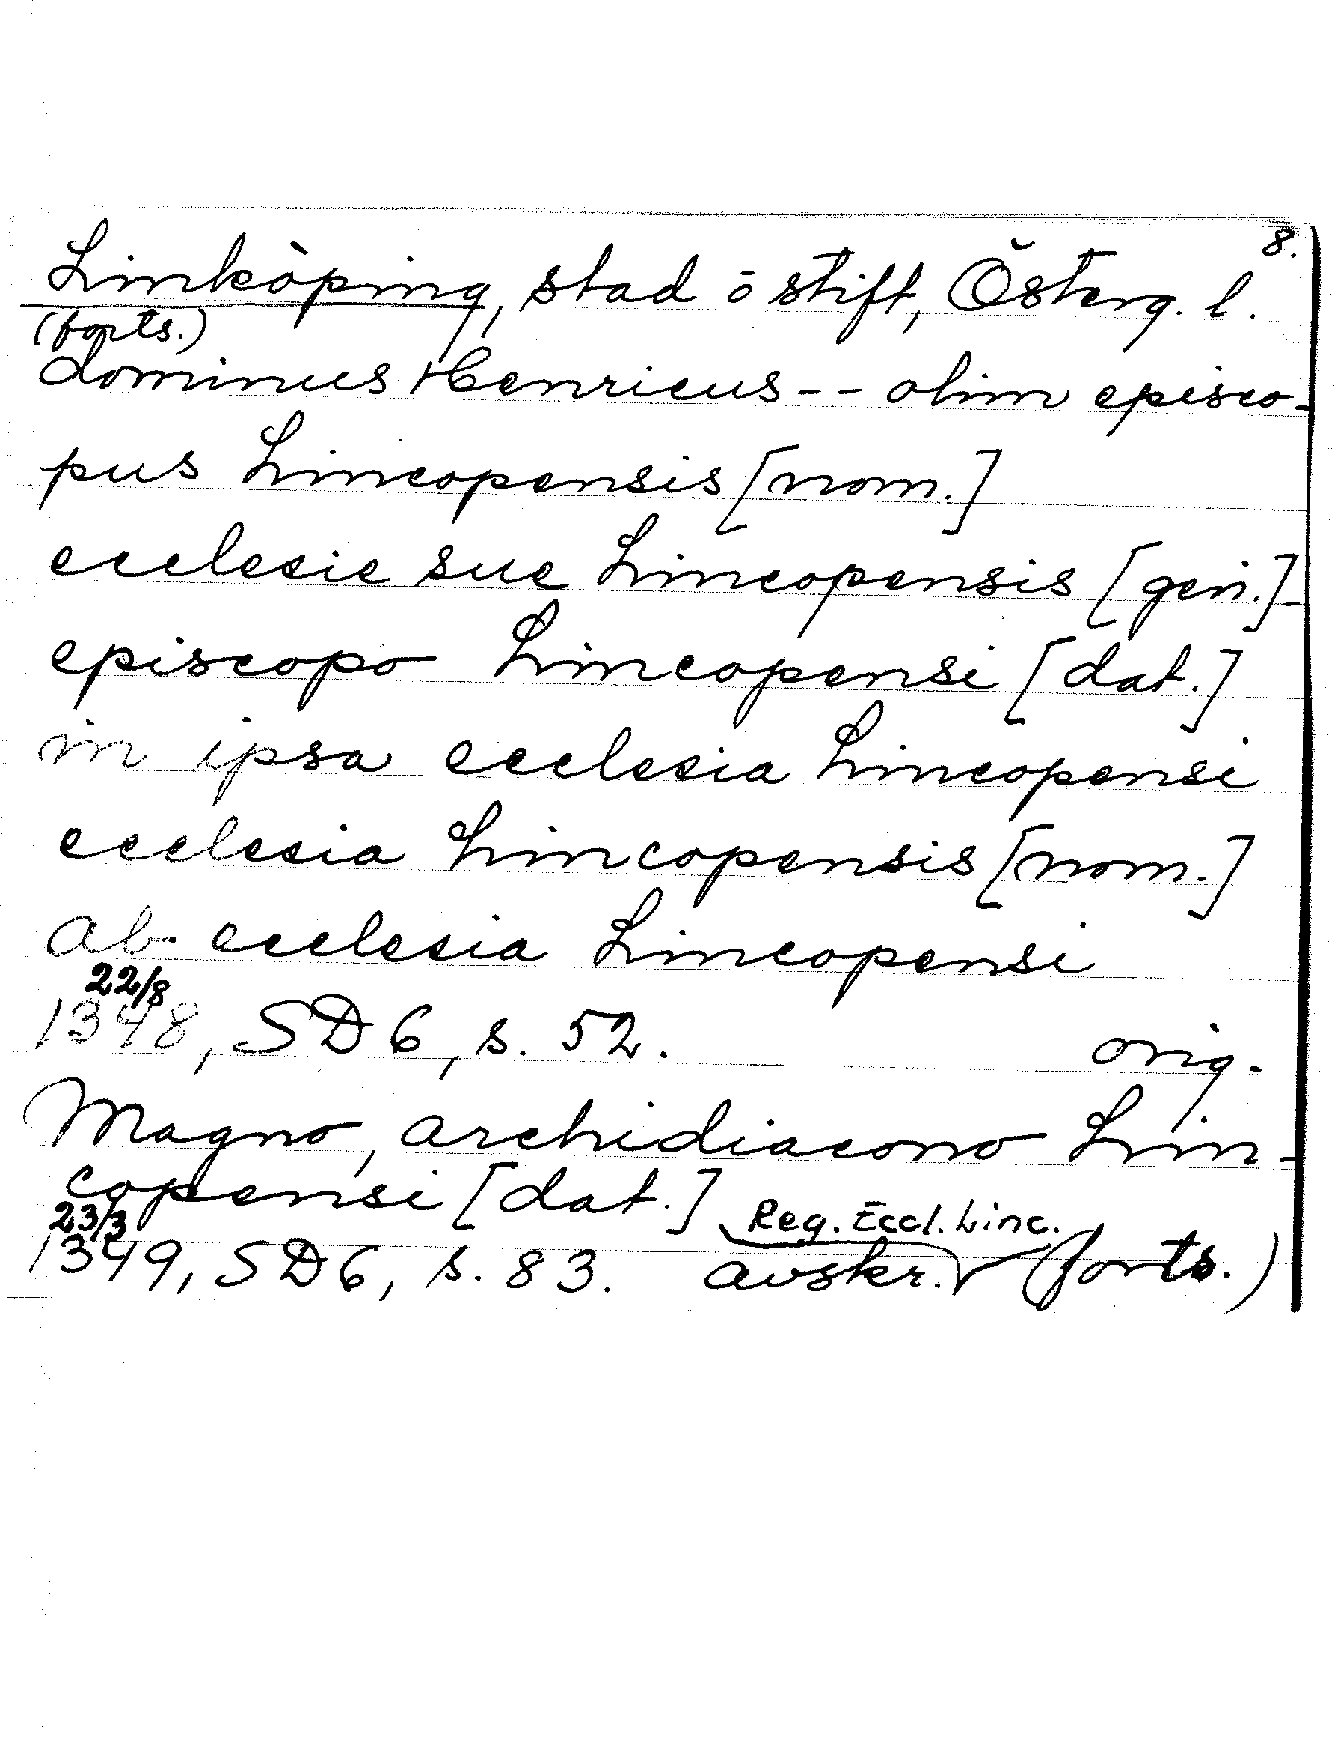 8.
Linköping, stad o stift, Österg. l.
(forts.)
dominus Henricus -- olim episco-
pus Lincopensis [nom.]
ecclesie sue Lincopensis [gen.]
episcopo Lincopensi [dat.]
in ipsa ecclesia Lincopensi
ecclesia Lincopensis [nom.]
ab ecclesia Lincopensi
22/8
1348, SD 6, s. 52. orig.
Magno, archidiacono Lin-
copensi [dat.]
23/3 Reg. Eccl. Linc.
1349, SD 6, s. 83. avskr. (forts.)